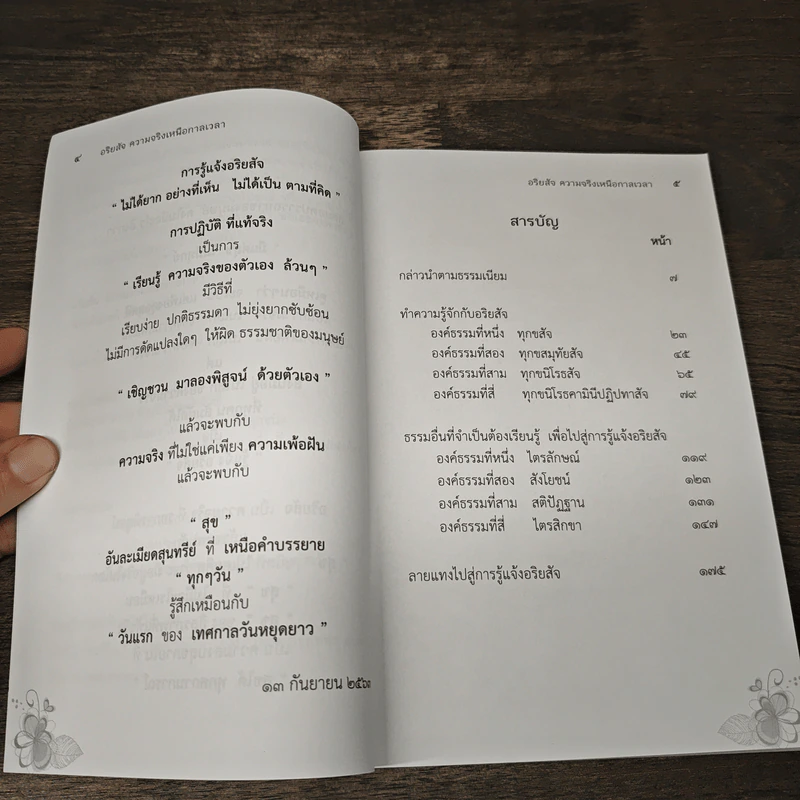 ๔ อริยสัจ ความจริงเหนือกาลเวลา
การรู้แจ้งอริยสัจ
“ ไม่ได้ยาก อย่างที่เห็น ไม่ได้เป็น ตามที่คิด ”
การปฏิบัติ ที่แท้จริง
เป็นการ
“ เรียนรู้ ความจริงของตัวเอง ล้วนๆ ”
มีวิธีที่
เรียบง่าย ปกติธรรมดา ไม่ยุ่งยากซับซ้อน
ไม่มีการดัดแปลงใดๆ ให้ผิด ธรรมชาติของมนุษย์
“ เชิญชวน มาลองพิสูจน์ ด้วยตัวเอง ”
แล้วจะพบกับ
ความจริง ที่ไม่ใช่แค่เพียง ความเพ้อฝัน
แล้วจะพบกับ
“ สุข ”
อันละเมียดสุนทรีย์ ที่ เหนือคำบรรยาย
“ ทุกๆวัน ”
รู้สึกเหมือนกับ
“ วันแรก ของ เทศกาลวันหยุดยาว ”
๑๓ กันยายน
อริยสัจ ความจริงเหนือกาลเวลา ๕
สารบัญ
หน้า
กล่าวนำตามธรรมเนียม ๗
ทำความรู้จักกับอริยสัจ
องค์ธรรมที่หนึ่ง ทุกขสัจ ๒๓
องค์ธรรมที่สอง ทุกขสมุทัยสัจ ๔๕
องค์ธรรมที่สาม ทุกขนิโรธสัจ ๖๕
องค์ธรรมที่สี่ ทุกขนิโรธคามินีปฏิปทาสัจ ๗๙
ธรรมอื่นที่จำเป็นต้องเรียนรู้ เพื่อไปสู่การรู้แจ้งอริยสัจ
องค์ธรรมที่หนึ่ง ไตรลักษณ์ ๑๑๙
องค์ธรรมที่สอง สังโยชน์ ๑๒๓
องค์ธรรมที่สาม สติปัฏฐาน ๑๓๑
องค์ธรรมที่สี่ ไตรสิกขา ๑๔๗
ลายแทงไปสู่การรู้แจ้งอริยสัจ ๑๗๕